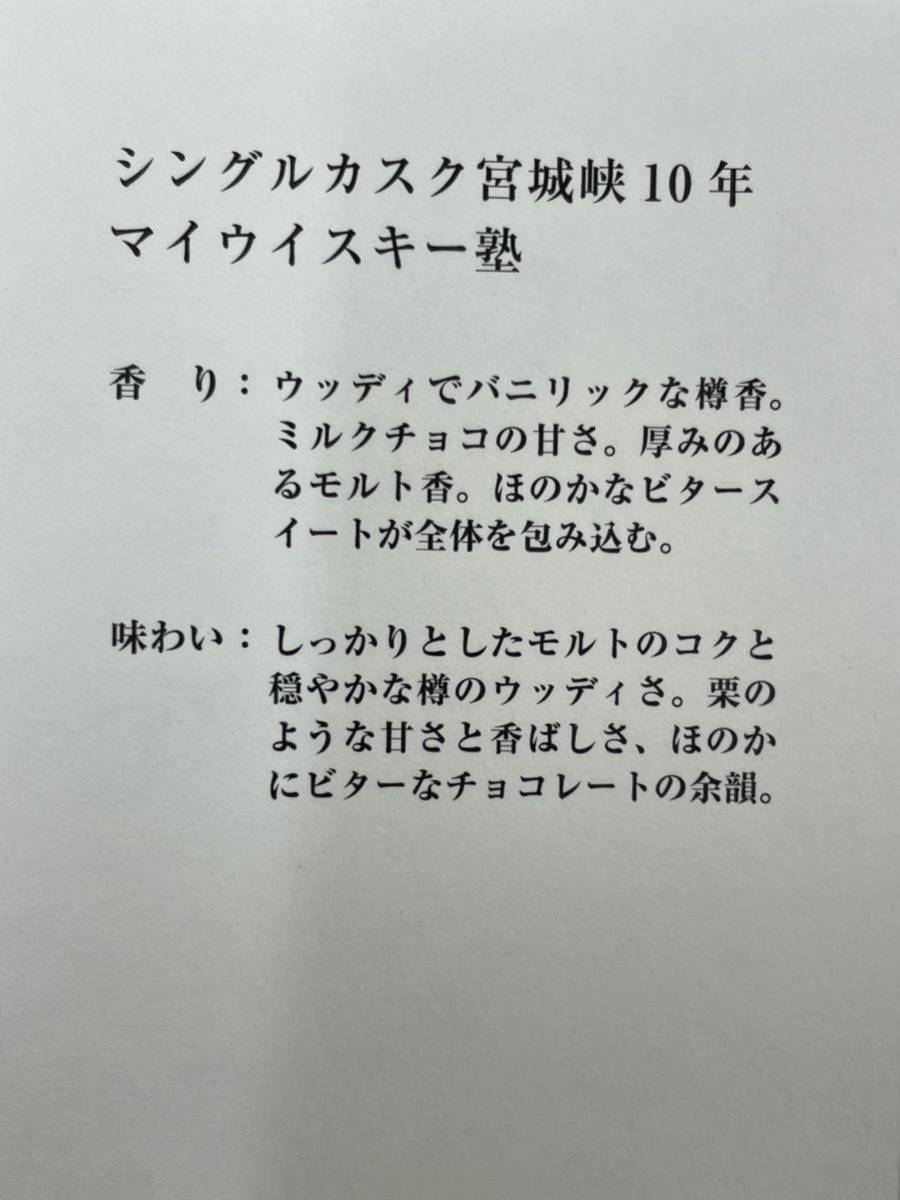 シングルカスク宮城峡10年
マイウイスキー塾
香　り：ウッディでバニリックな樽香。
ミルクチョコの甘さ。厚みのあ
るモルト香。ほのかなビタース
イートが全体を包み込む。
味わい：しっかりとしたモルトのコクと
穏やかな樽のウッディさ。栗の
ような甘さと香ばしさ、ほのか
にビターなチョコレートの余韻。